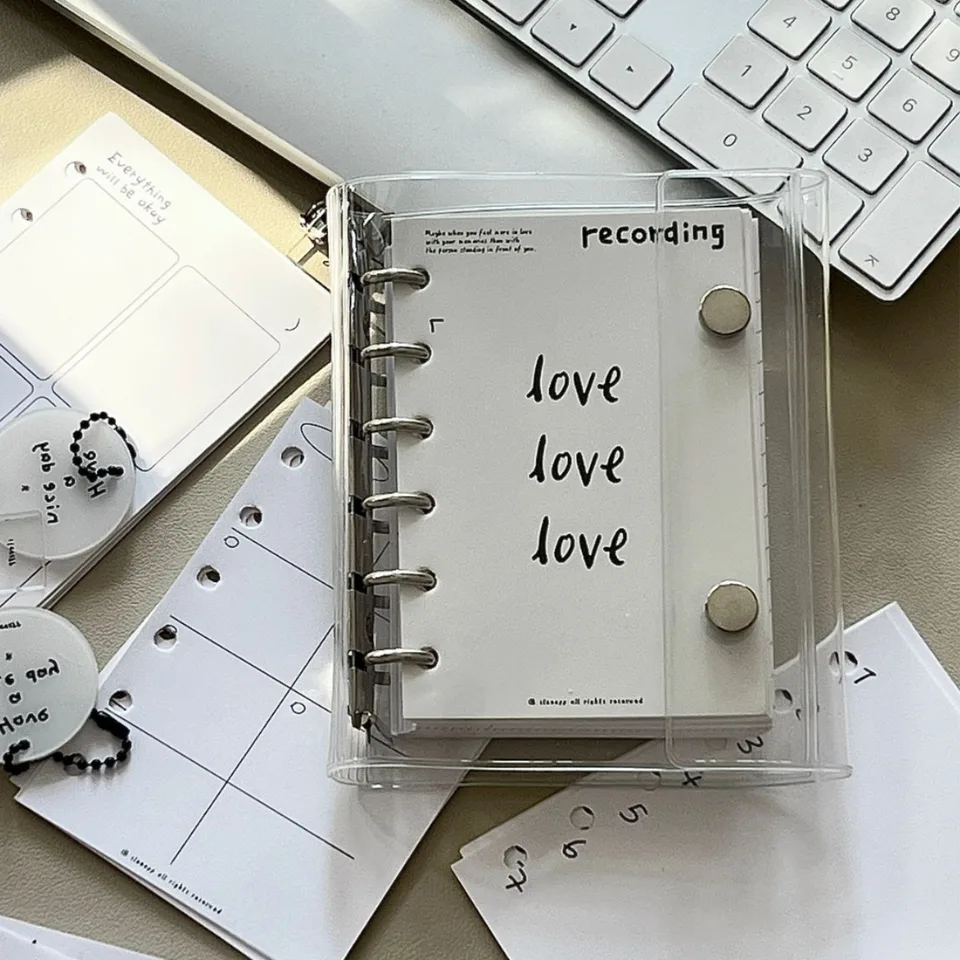 4
8
1
5
9
0
2
6
3
Everything
will be okay
Maybe when you feel more in love
with your memories than with
the person standing in front of you.
recording
love
love
love
© sloneyy all rights reserved
Have
a
nice day
*
*
e day
a
Have
© sloneyy all rights reserved
7
3
x
5
6
x